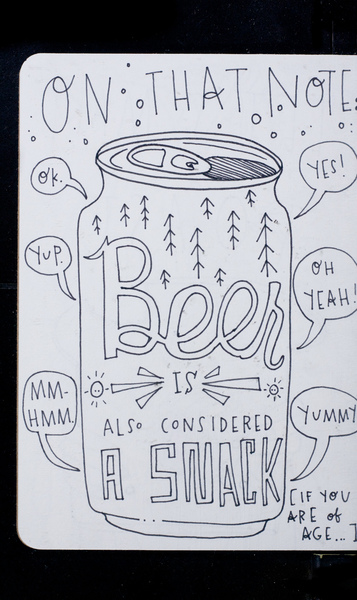 ON THAT NOTE:
OK.
YES!
YUP.
OH
YEAH!
Beer
IS
MM-
HMM.
ALSO CONSIDERED
YUMMY
A SNACK
[IF YOU
ARE of
AGE...]